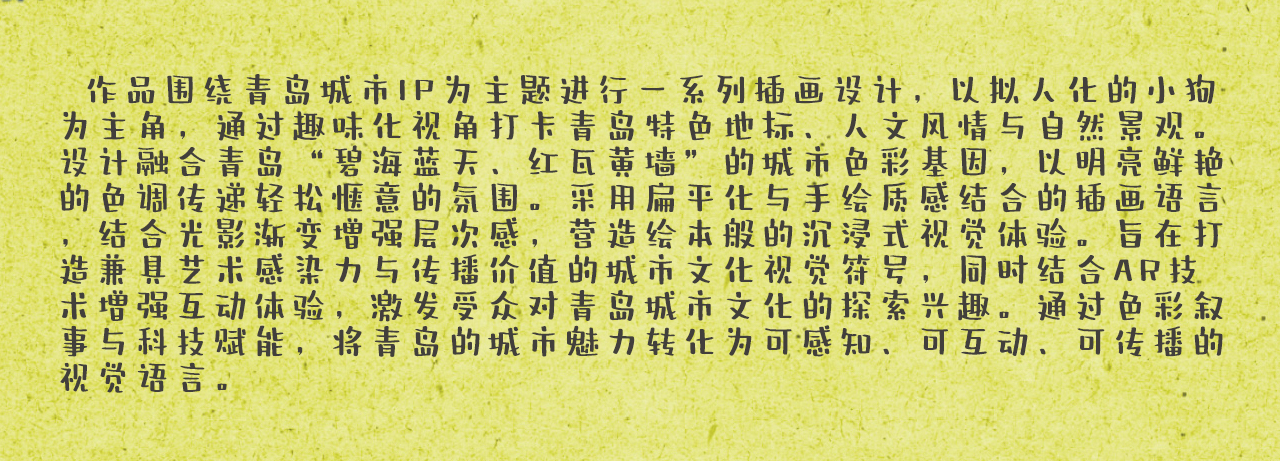 作品围绕青岛城市IP为主题进行一系列插画设计，以拟人化的小狗
为主角，通过趣味化视角打卡青岛特色地标、人文风情与自然景观。
设计融合青岛“碧海蓝天、红瓦黄墙”的城市色彩基因，以明亮鲜艳
的色调传递轻松惬意的氛围。采用扁平化与手绘质感结合的插画语言
，结合光影渐变增强层次感，营造绘本般的沉浸式视觉体验。旨在打
造兼具艺术感染力与传播价值的城市文化视觉符号，同时结合AR技
术增强互动体验，激发受众对青岛城市文化的探索兴趣。通过色彩叙
事与科技赋能，将青岛的城市魅力转化为可感知、可互动、可传播的
视觉语言。